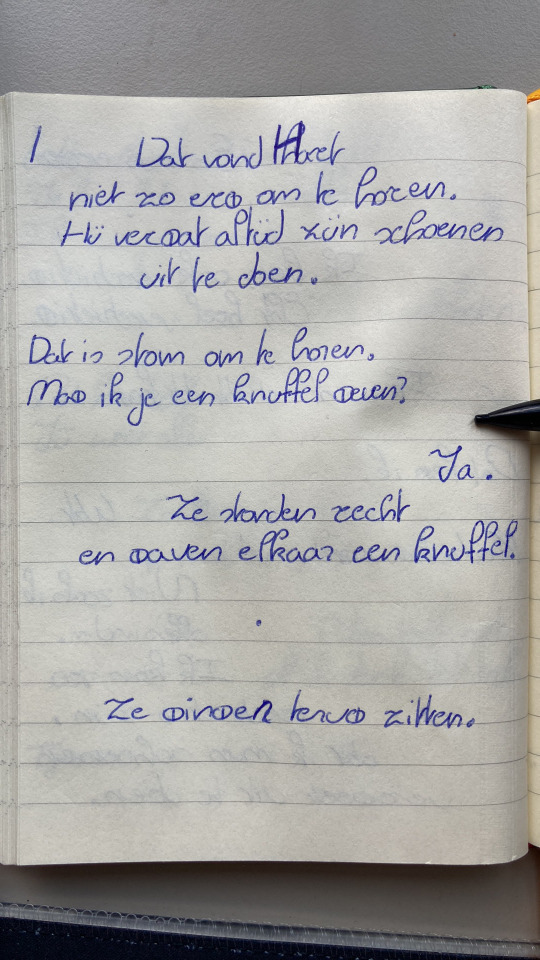 1 Dat vond
niet zo erg om te horen.
Hij vergat altijd zijn schoenen
uit te doen.
Dat is stom om te horen.
Mag ik je een knuffel geven?
Ja.
Ze stonden recht
en gaven elkaar een knuffel.
.
Ze gingen terug zitten.